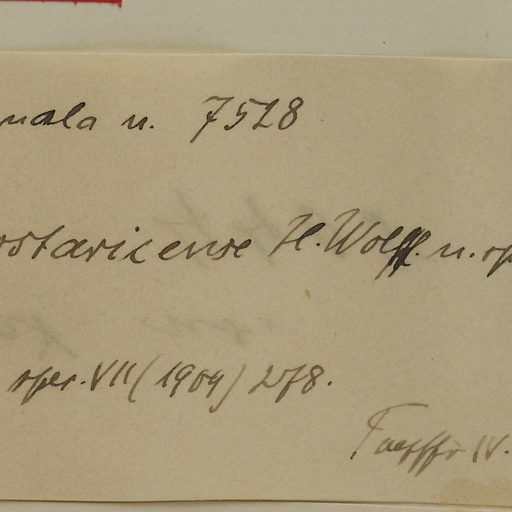 nala n. 7518
ostaricense H. Wolff. n. sp
sper. VII (1909) 278.
IV.